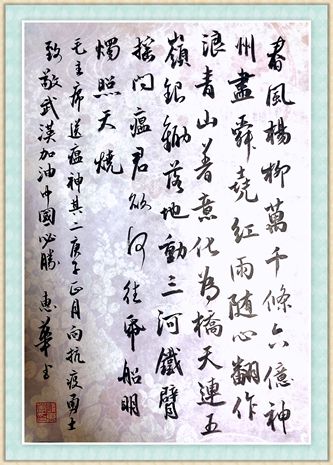 春風楊柳萬千條六億神
州盡舜堯紅雨隨心翻作
浪青山着意化為橋天連五
嶺銀鋤落地動三河鐵臂
搖問瘟君欲何往紙船明
燭照天燒
毛主席送瘟神其二庚子正月向抗疫勇士
致敬武漢加油中國必勝 惠華书